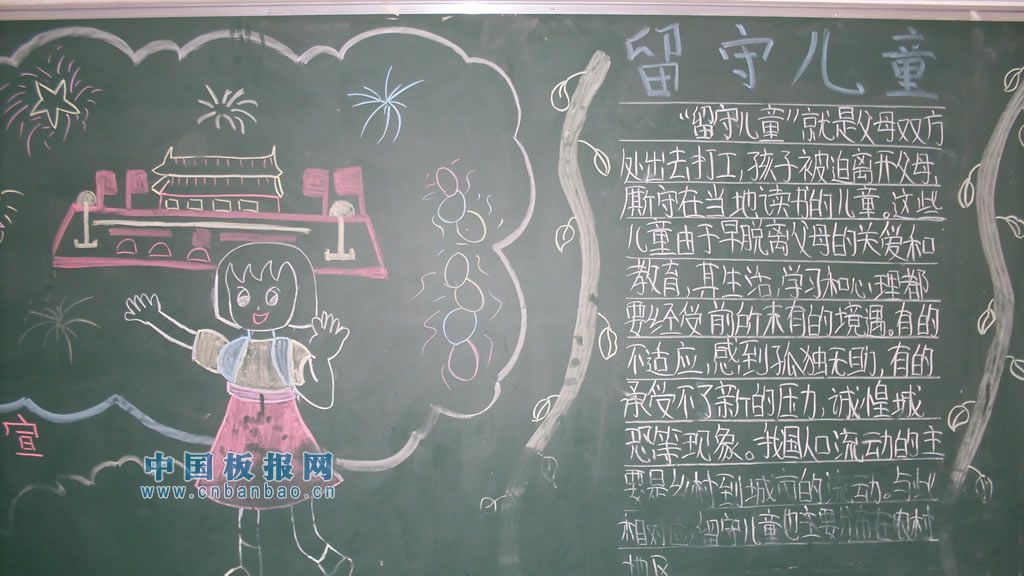 留守儿童
"留守儿童"就是父母双方
处出去打工,孩子被迫离开父母,
厮守在当地读书的儿童。这些
儿童由于早脱离父母的关爱和
教育,其生活,学习和心理都
要经受前的未有的境遇。有的
不适应,感到孤独无助,有的
承受不了新的压力,诚惶诚
恐等现象。我国人口流动的主
要是乡村到城市的流动。与此
相对应,留守儿童也主要分布在农村
地区
宣
中国板报网
www.cnbanbao.cn